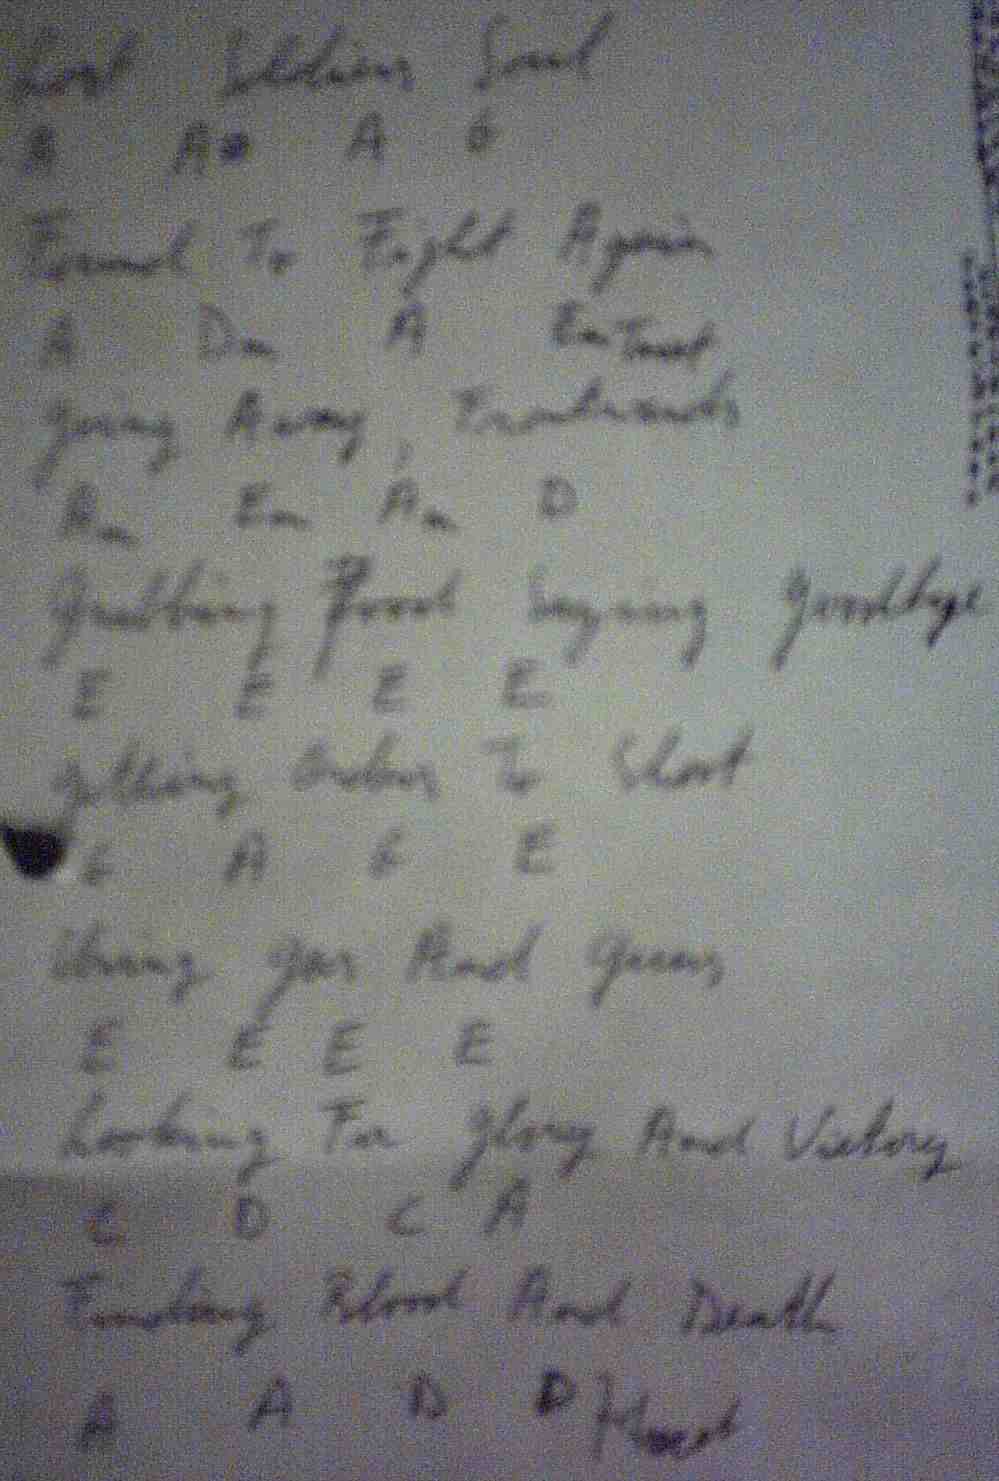 Lost Soldiers Soul
A A A G
Found To Fight Again
A Dm A Em
Going Away, Frontwards
Am Em Am D
Grabbing Food Saying Goodbye
E E E E
Getting Orders To Shoot
G A G E
Using Gas And Guns
E E E E
Looking For Glory And Victory
C D C A
Finding Blood And Death
A A D D